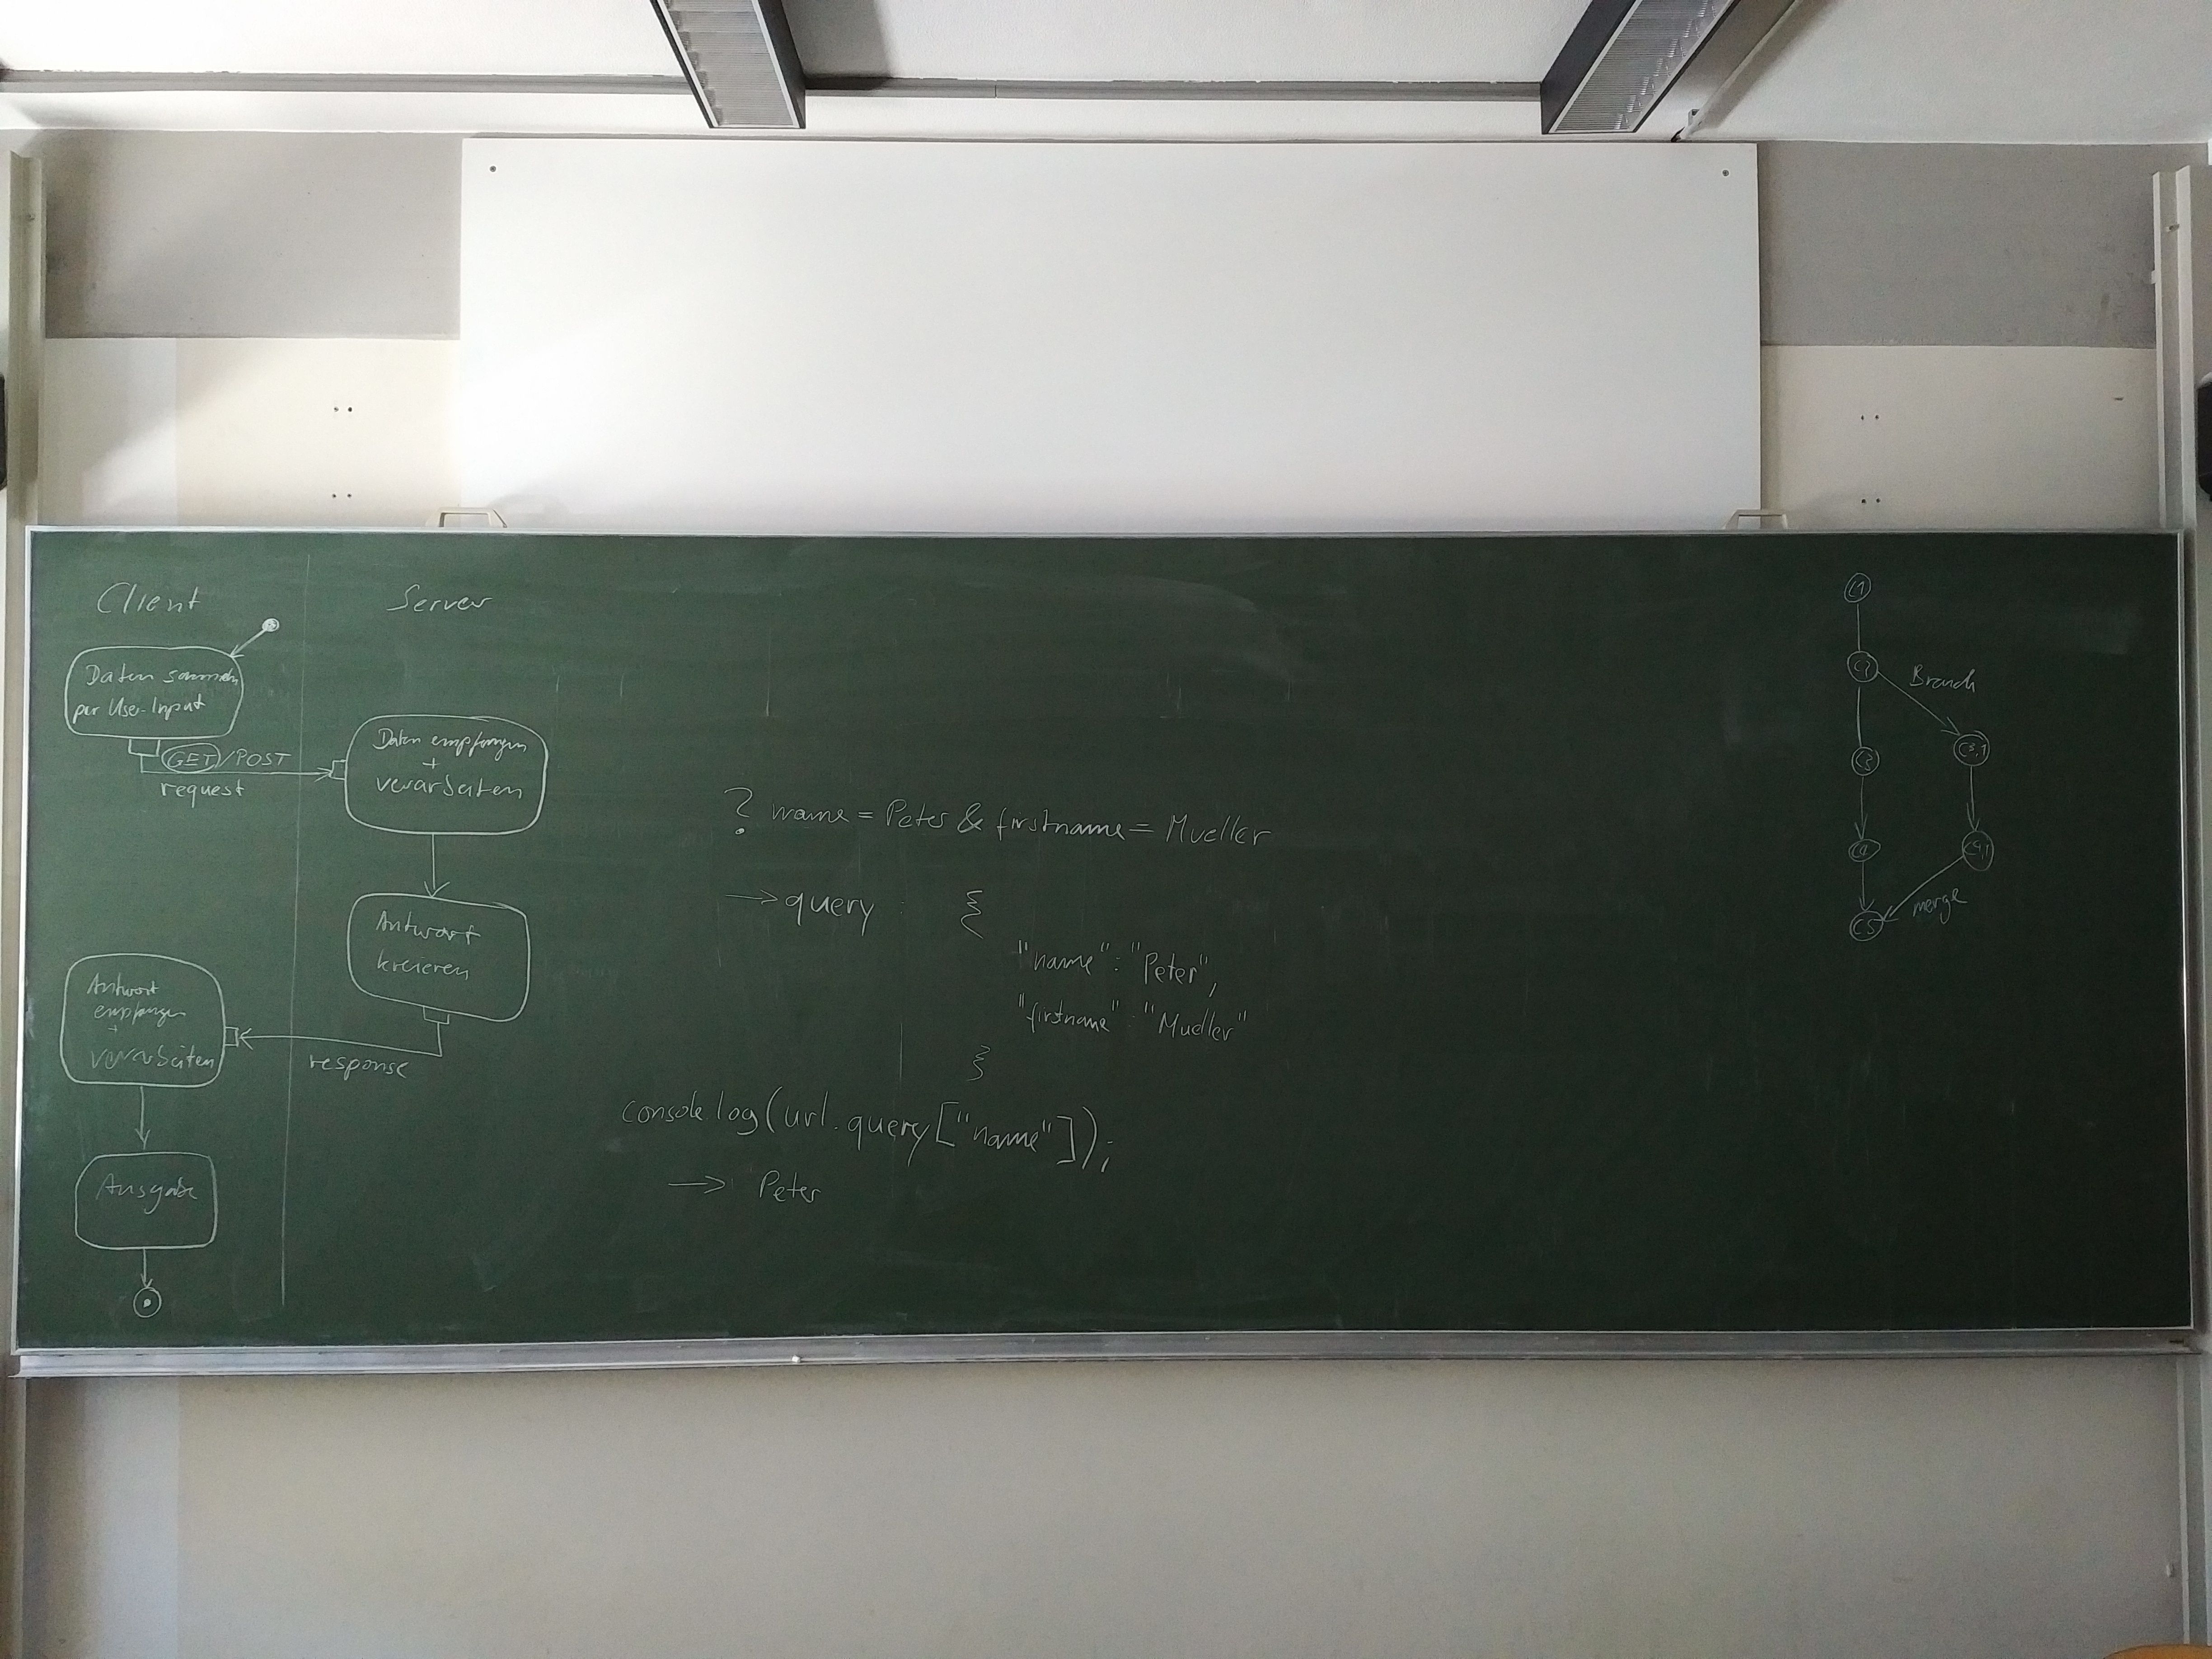 Client
Server
Daten sammeln
per User-Input
GET/POST
request
Daten empfangen
+
verarbeiten
Antwort
kreieren
response
Antwort
empfangen
+
verarbeiten
Ausgabe
? name = Peter & firstname = Mueller
→ query : {
"name" : "Peter",
"firstname" : "Mueller"
}
console.log(url.query["name"]);
→ Peter
C1
C2
Branch
C3
C3,1
C4
C4,1
merge
C5